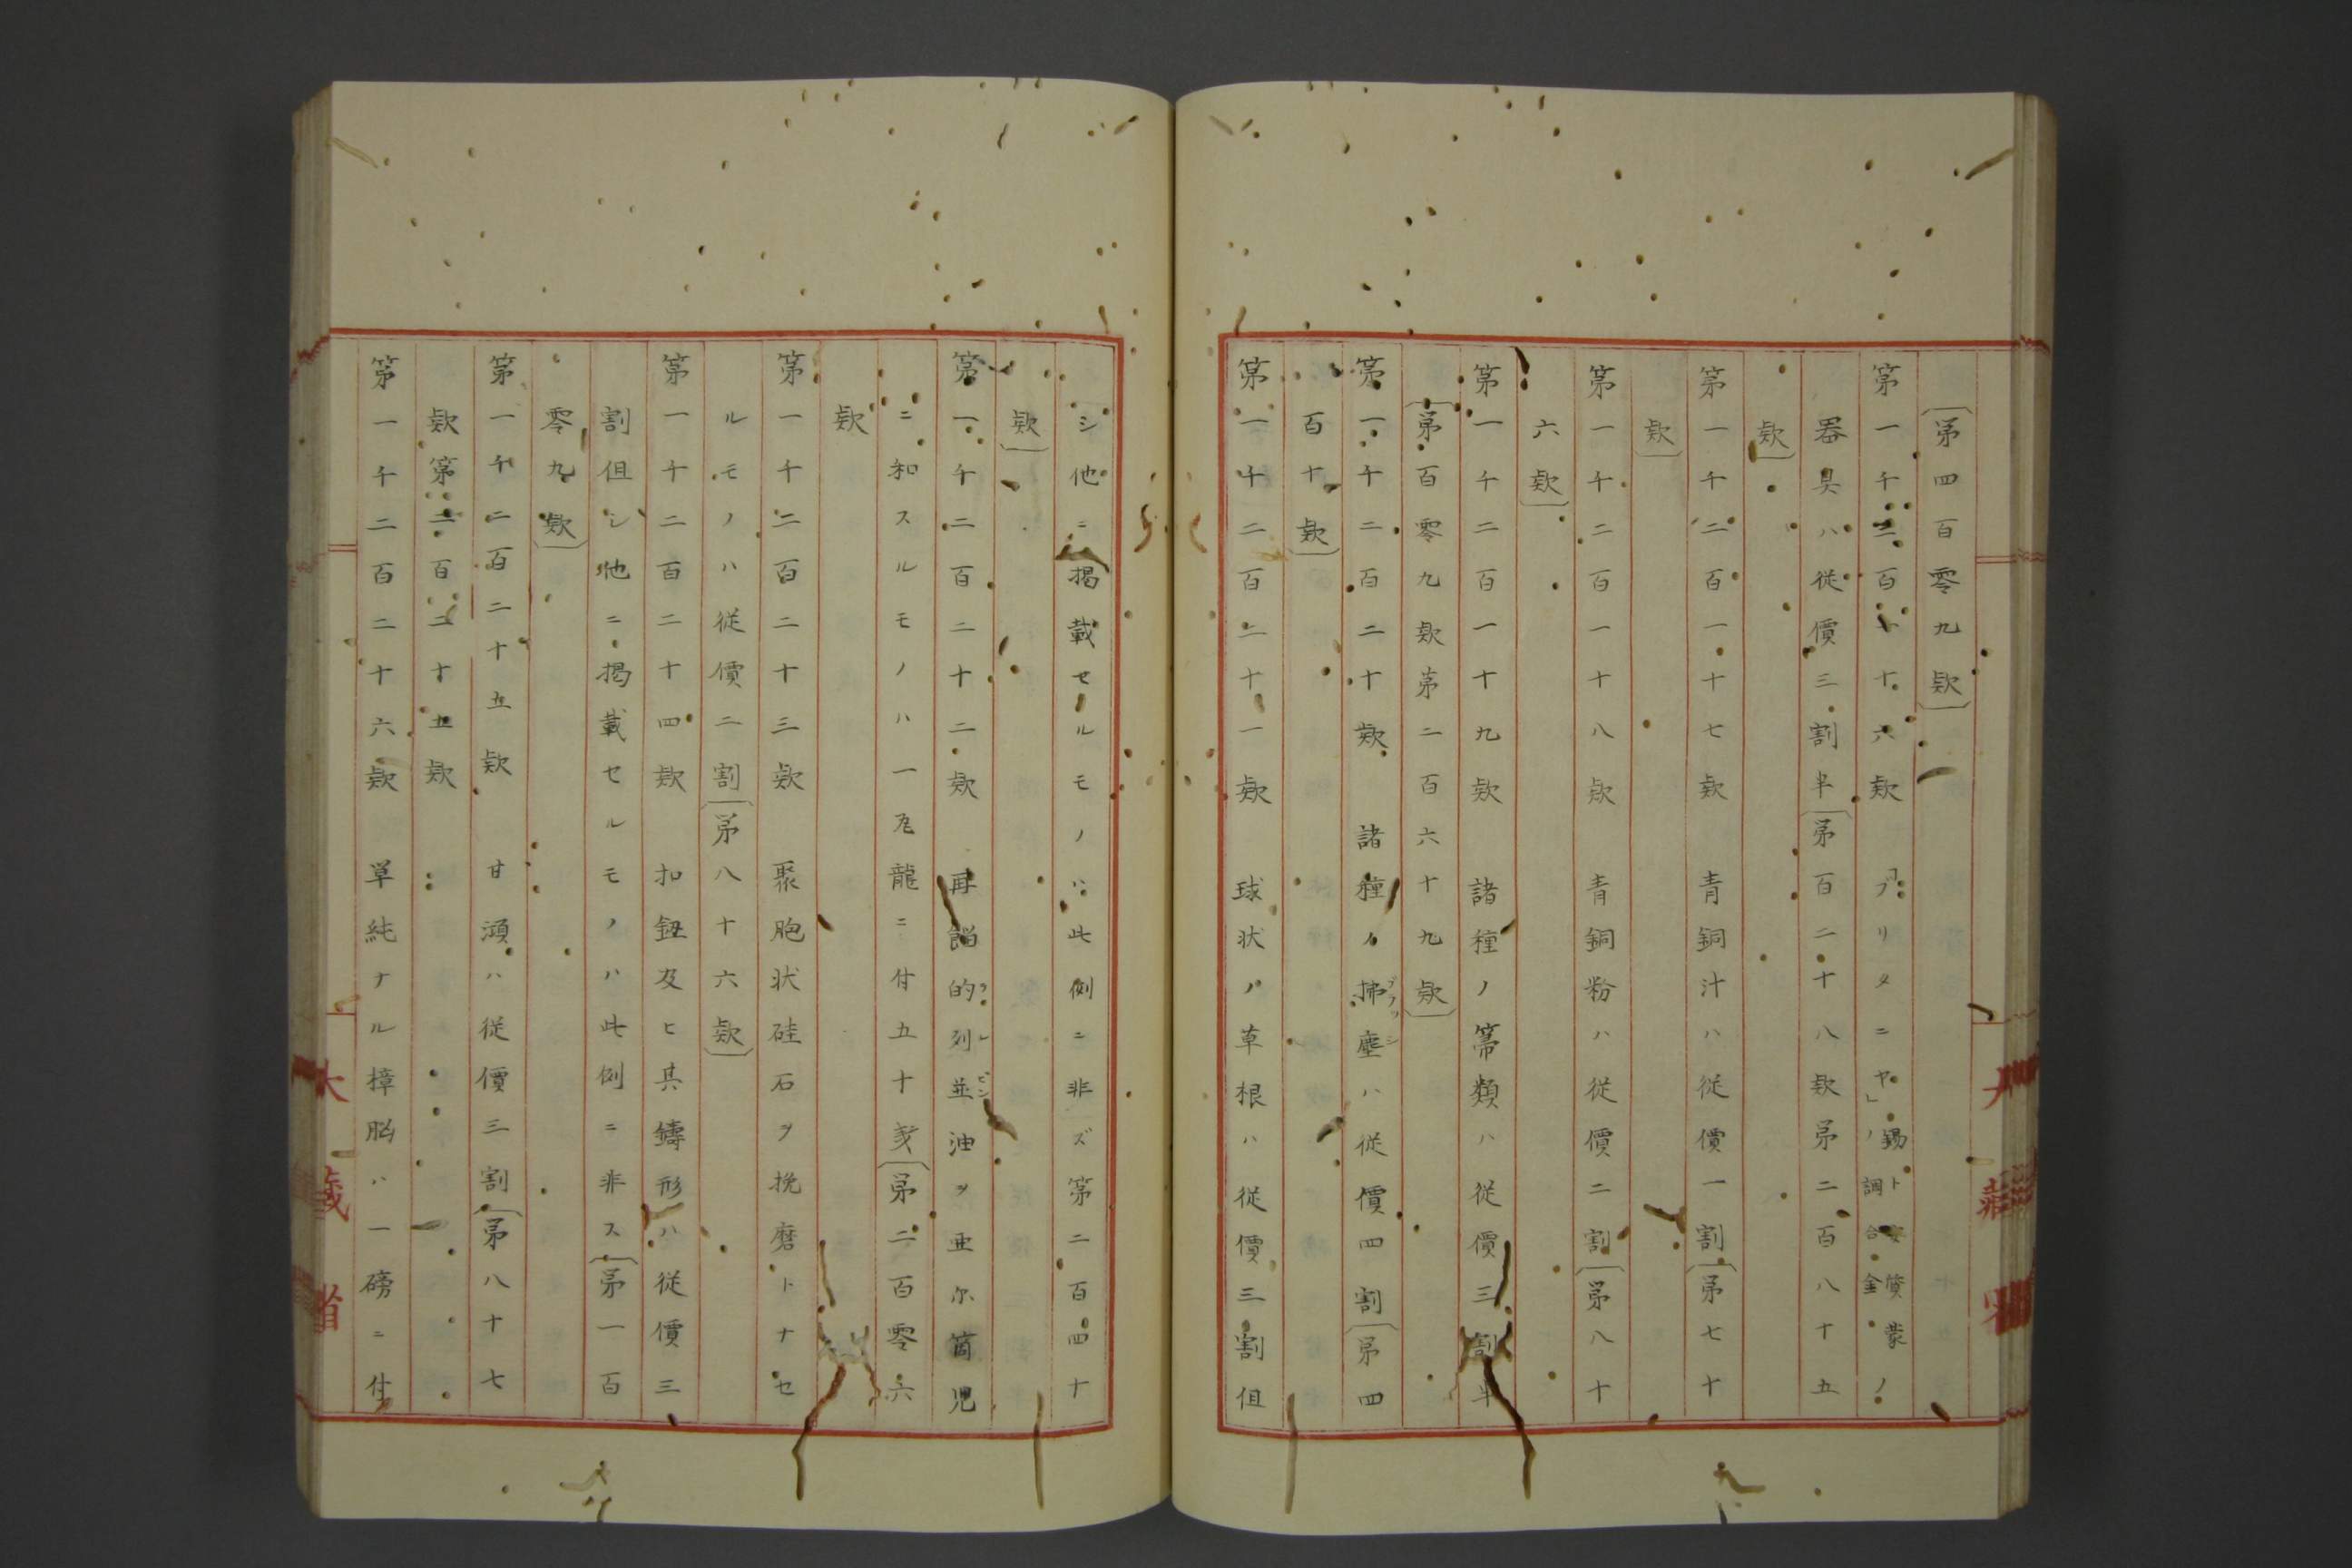 〔第四百零九欵〕
第一千二百一十六欵　「ブリタニヤ」ノ錫ト安質蒙ノ調合金
器具ハ從價三割半〔第百二十八欵第二百八十五
欵〕
第一千二百一十七欵　青銅汁ハ從價一割〔第七十
欵〕
第一千二百一十八欵　青銅粉ハ從價二割〔第八十
六欵〕
第一千二百一十九欵　諸種ノ箒類ハ從價三割半
〔第百零九欵第二百六十九欵〕
第一千二百二十欵　諸種ノ拂塵ハ從價四割〔第四
百十欵〕
第一千二百二十一欵　球状ノ草根ハ從價三割但
シ他ニ掲載セルモノハ此例ニ非ズ第二百四十
欵〕
第一千二百二十二欵　再餾的列並油ヲ亜尓箇児
ニ和スルモノハ一瓦龍ニ付五十〔第二百零六
欵
第一千二百二十三欵　聚胞状硅石ヲ挽磨トナセ
ルモノハ從價二割〔第八十六欵〕
第一千二百二十四欵　扣鈕及ヒ其鑄形ハ從價三
割但シ他ニ掲載セルモノハ此例ニ非ス〔第一百
零九欵〕
第一千二百二十五欵　甘澒ハ從價三割〔第八十七
欵第二百二十五欵
第一千二百二十六欵　単純ナル樟脳ハ一磅ニ付
大藏省